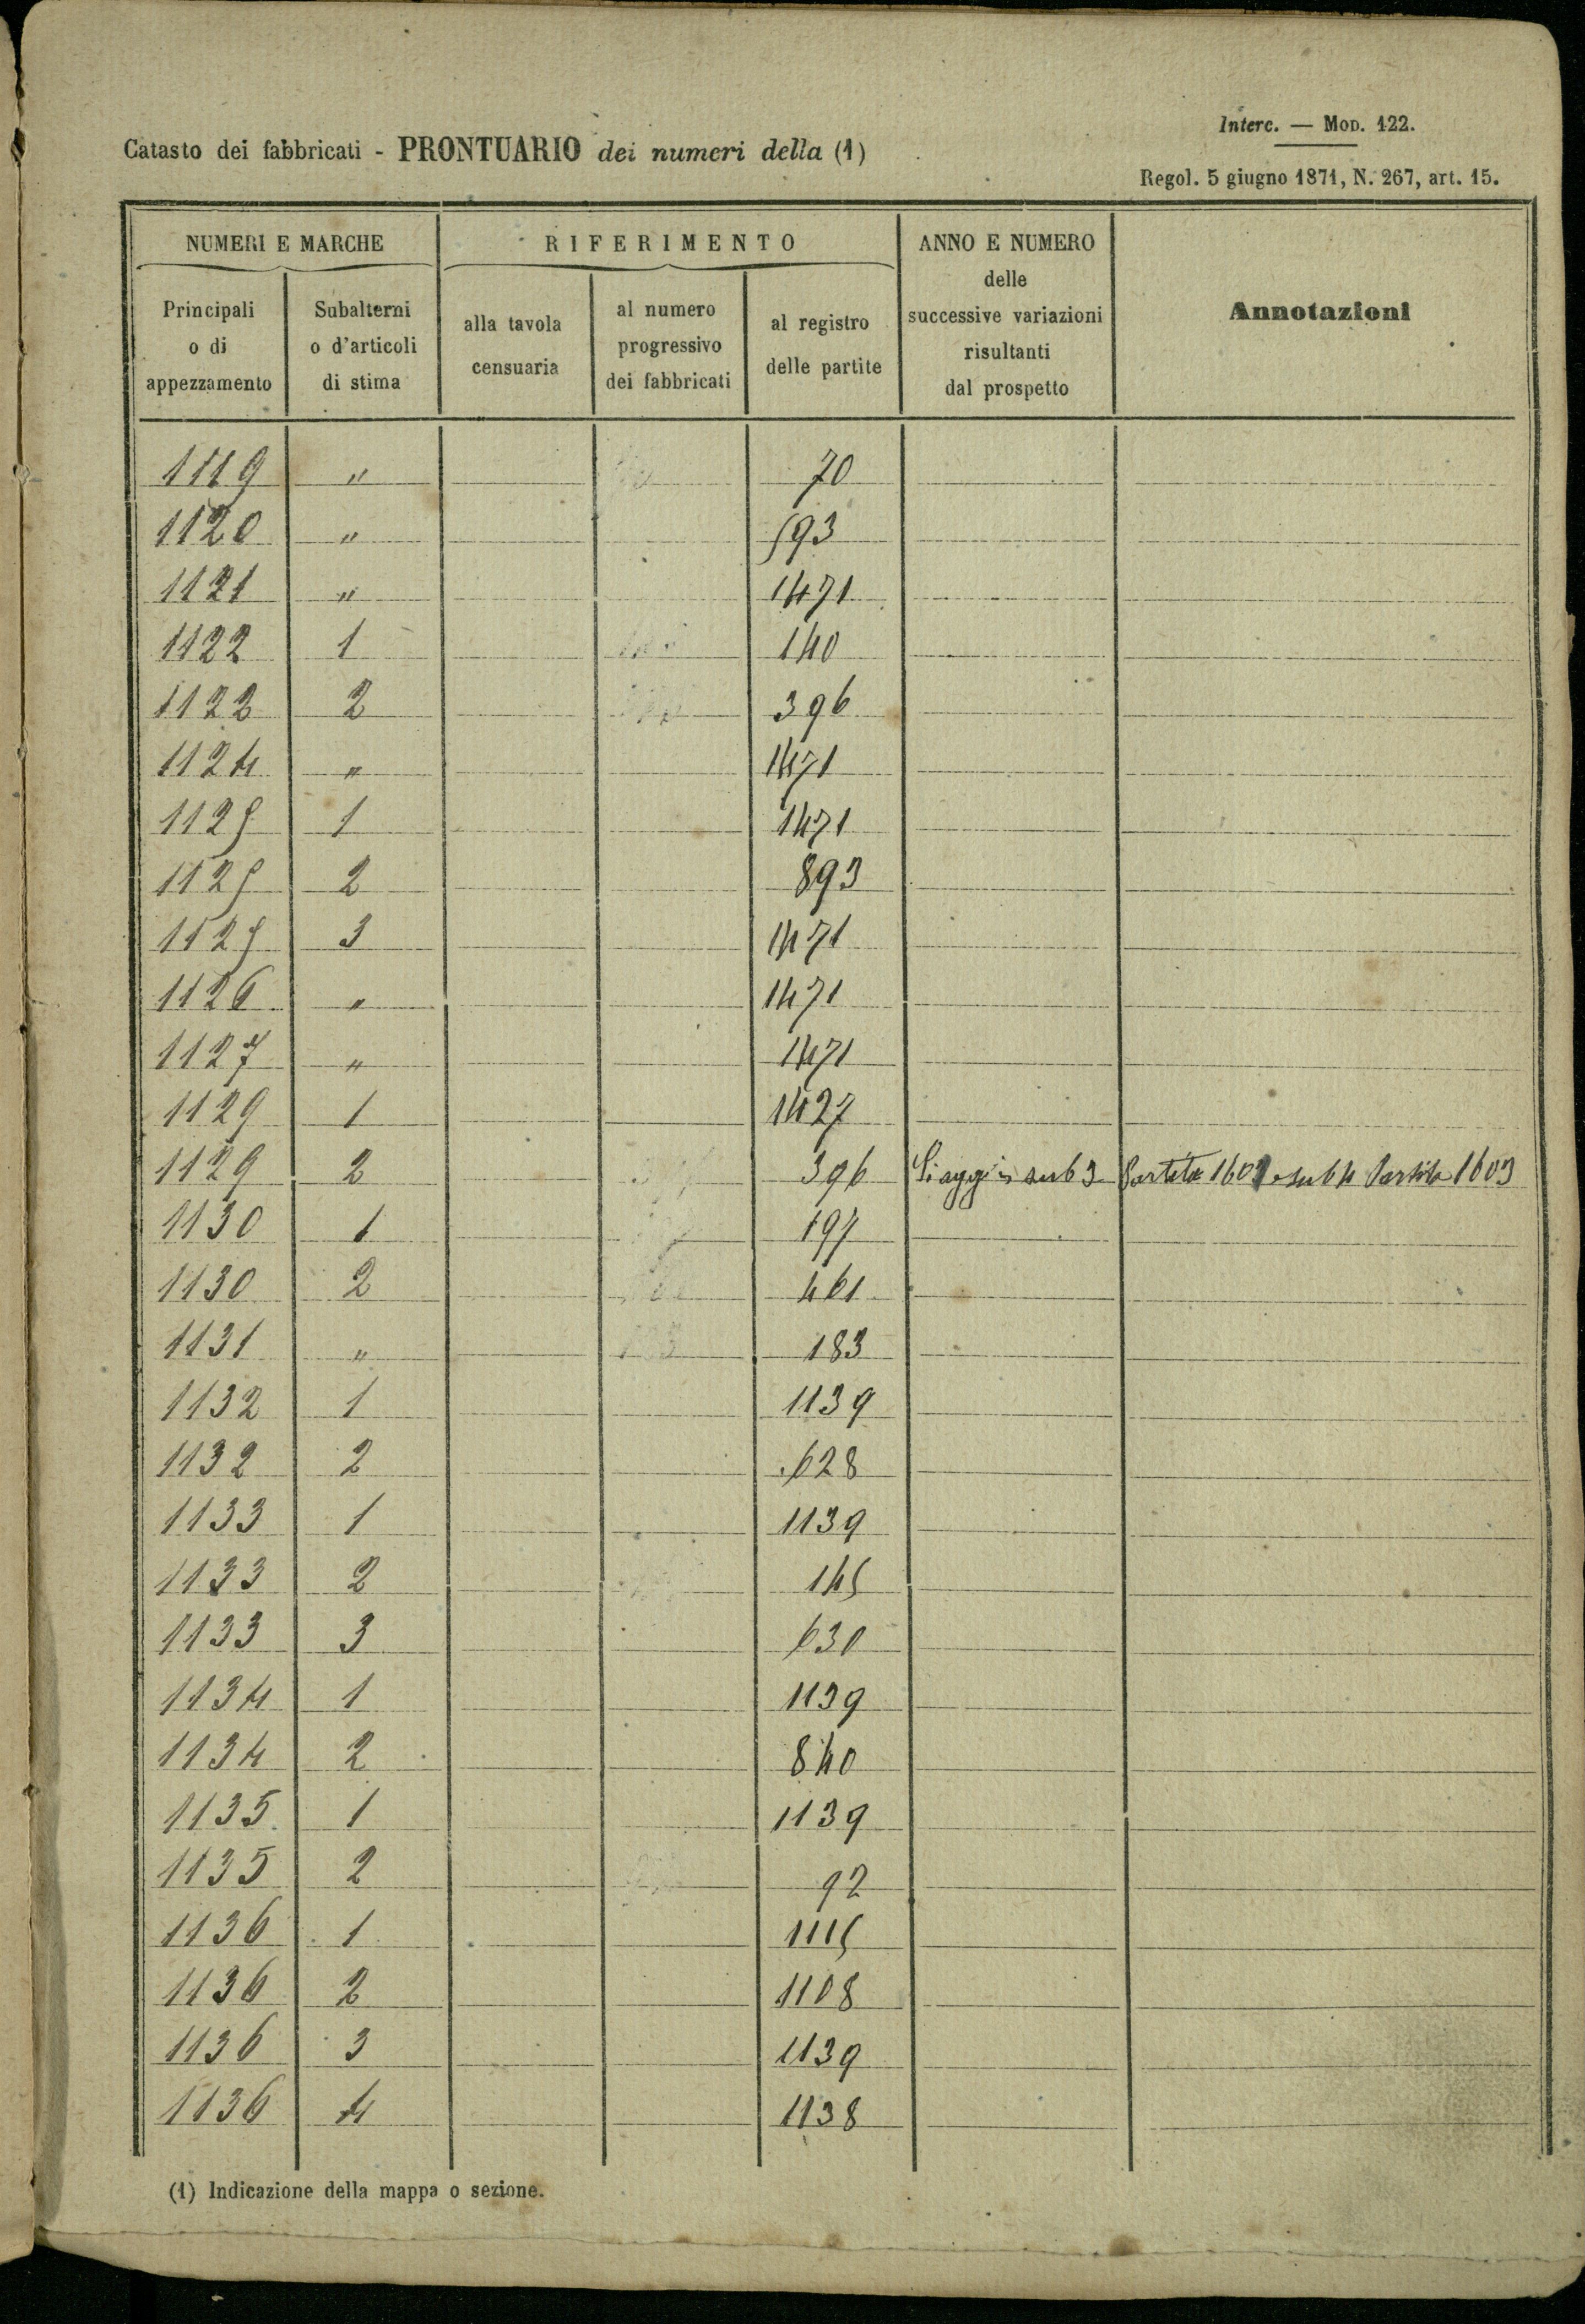 Interc. — Mod. 122.
Catasto dei fabbricati - PRONTUARIO dei numeri della (1)
Regol. 5 giugno 1871, N. 267, art. 15.
NUMERI E MARCHE
RIFERIMENTO
ANNO E NUMERO
delle
successive variazioni
risultanti
dal prospetto
Annotazioni
Principali
o di
appezzamento
Subalterni
o d'articoli
di stima
alla tavola
censuaria
al numero
progressivo
dei fabbricati
al registro
delle partite
1119 " 70
1120 " 593
1121 " 1471
1122 1 140
1122 2 396
1124 " 1471
1125 1 1471
1125 2 893
1125 3 1471
1126 " 1471
1127 " 1471
1129 1 1427
1129 2 396 sub 3 Partita e sub 4 Partita 1603
1130 1 197
1130 2 461
1131 " 183
1132 1 1139
1132 2 628
1133 1 1139
1133 2 145
1133 3 630
1134 1 1139
1134 2 840
1135 1 1139
1135 2 92
1136 1 1115
1136 2 1108
1136 3 1139
1136 4 1138
(1) Indicazione della mappa o sezione.